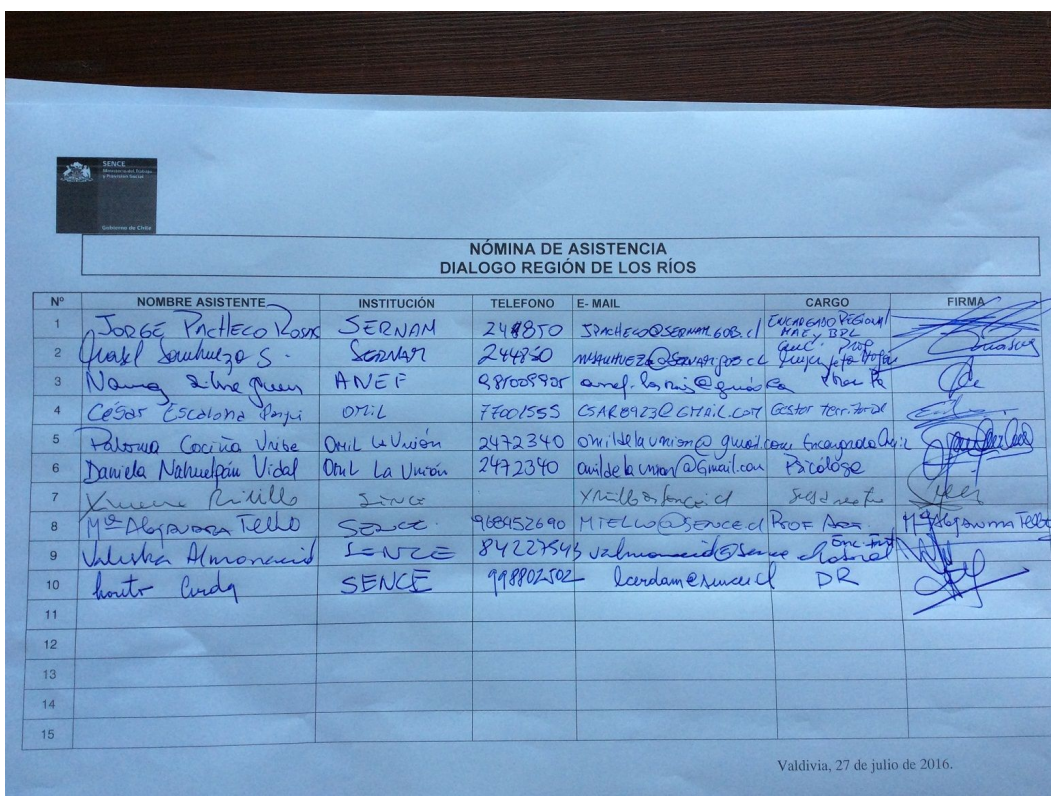 SENCE
Ministerio del Trabajo
y Previsión Social
Gobierno de Chile
NÓMINA DE ASISTENCIA
DIALOGO REGIÓN DE LOS RÍOS
Nº NOMBRE ASISTENTE INSTITUCIÓN TELEFONO E- MAIL CARGO FIRMA
1 JORGE PACHECO ROSAS SERNAM JPACHECO@SERNAM.GOB.cl ENCARGADO REGIONAL
MAE y BPL
2 S. SERNAM 244850 Jefa Hogar
3 ANEF
4 César Escalona OMIL 77001555 CSAR8923@GMAIL.COM Gestor territorial
5 Paloma Cociña Uribe OMIL La Unión 2472340 omildelaunion@gmail.com Encargada Omil
6 Daniela Nahuelpán Vidal OMIL La Unión 2472340 omildelaunion@Gmail.com Psicóloga
7 Sence
8 Mª Alejandra Tello SENCE. 968952690 MTELLO@SENCE.cl Prof Mª Alejandra Tello
9 Valeska Almonacid SENCE valmonacid@sence.cl
10 SENCE 998802502 lcerdam@sence.cl DR
11
12
13
14
15
Valdivia, 27 de julio de 2016.